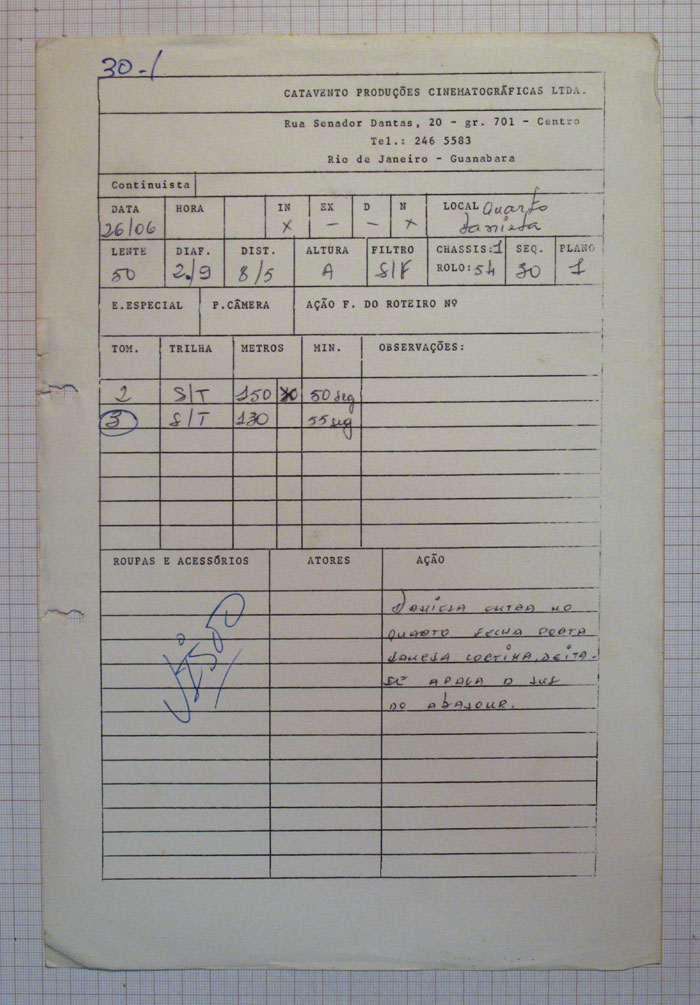 30-1
CATAVENTO PRODUÇÕES CINEMATOGRÁFICAS LTDA.
Rua Senador Dantas, 20 - gr. 701 - Centro
Tel.: 246 5583
Rio de Janeiro - Guanabara
Continuista
DATA HORA IN EX D N LOCAL Quarto
26/06 x - - x Daniela
LENTE DIAF. DIST. ALTURA FILTRO CHASSIS:1 SEQ. PLANO
50 2.9 8/5 A S/F ROLO:54 30 1
E.ESPECIAL P.CÂMERA AÇÃO F. DO ROTEIRO Nº
TOM. TRILHA METROS MIN. OBSERVAÇÕES:
2 S/T 150 50 seg
3 S/T 130 55 seg
ROUPAS E ACESSÓRIOS ATORES AÇÃO
DANIELA ENTRA NO
QUARTO FECHA PORTA
JANELA CORTINA, DEITA-
SE APAGA O LUZ
DO ABAJOUR.